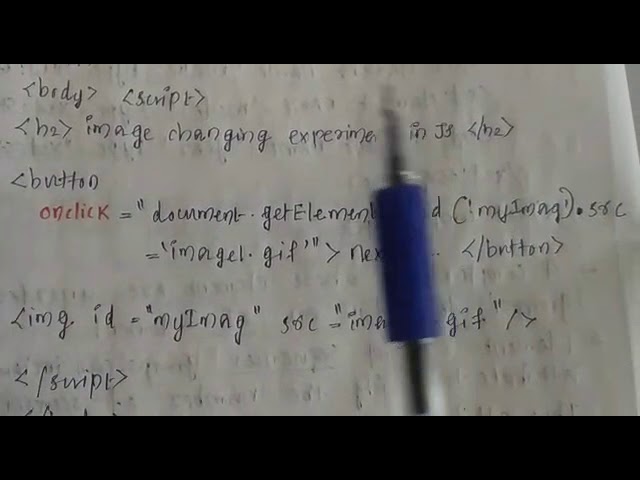 <body> <script>
<h2> image changing experime in JS </h2>
<button
onclick = "document.getElement d ('myImag').src
='image1.gif'"> nex .. </button>
<img id = "myImag" src = "ima gif" />
</script>